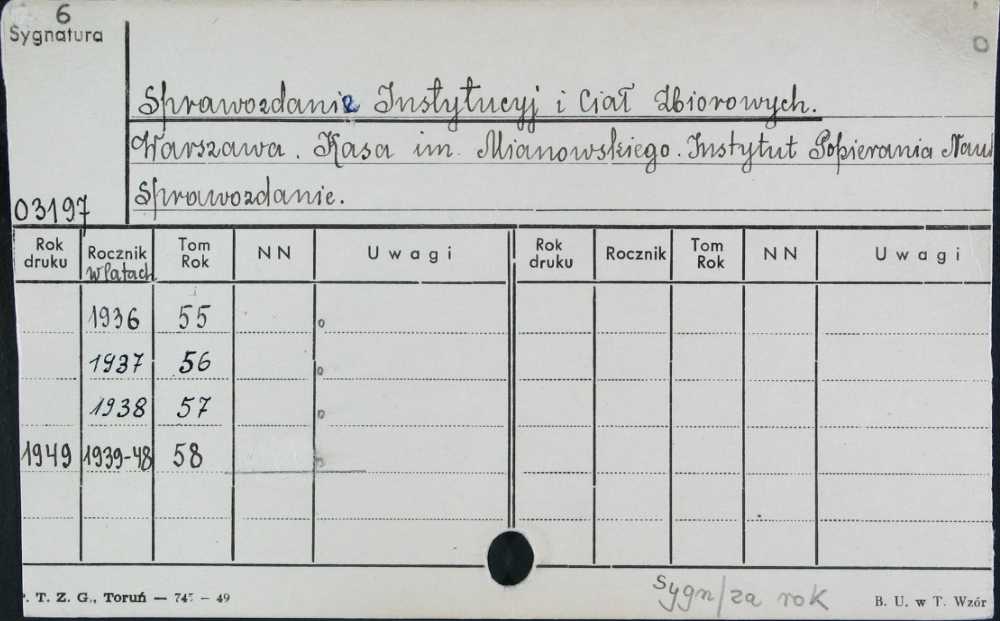 6
Sygnatura
Sprawozdanie Instytucyj i Ciał Zbiorowych.
Warszawa. Kasa im. Mianowskiego. Instytut Popierania Nau
Sprawozdanie.
03197
Rok druku Rocznik w latach Tom Rok NN Uwagi Rok druku Rocznik Tom Rok NN Uwagi
1936 55
1937 56
1938 57
1949 1939-48 58
. T. Z. G., Toruń — 74 – 49
Sygn/za rok
B. U. w T. Wzór